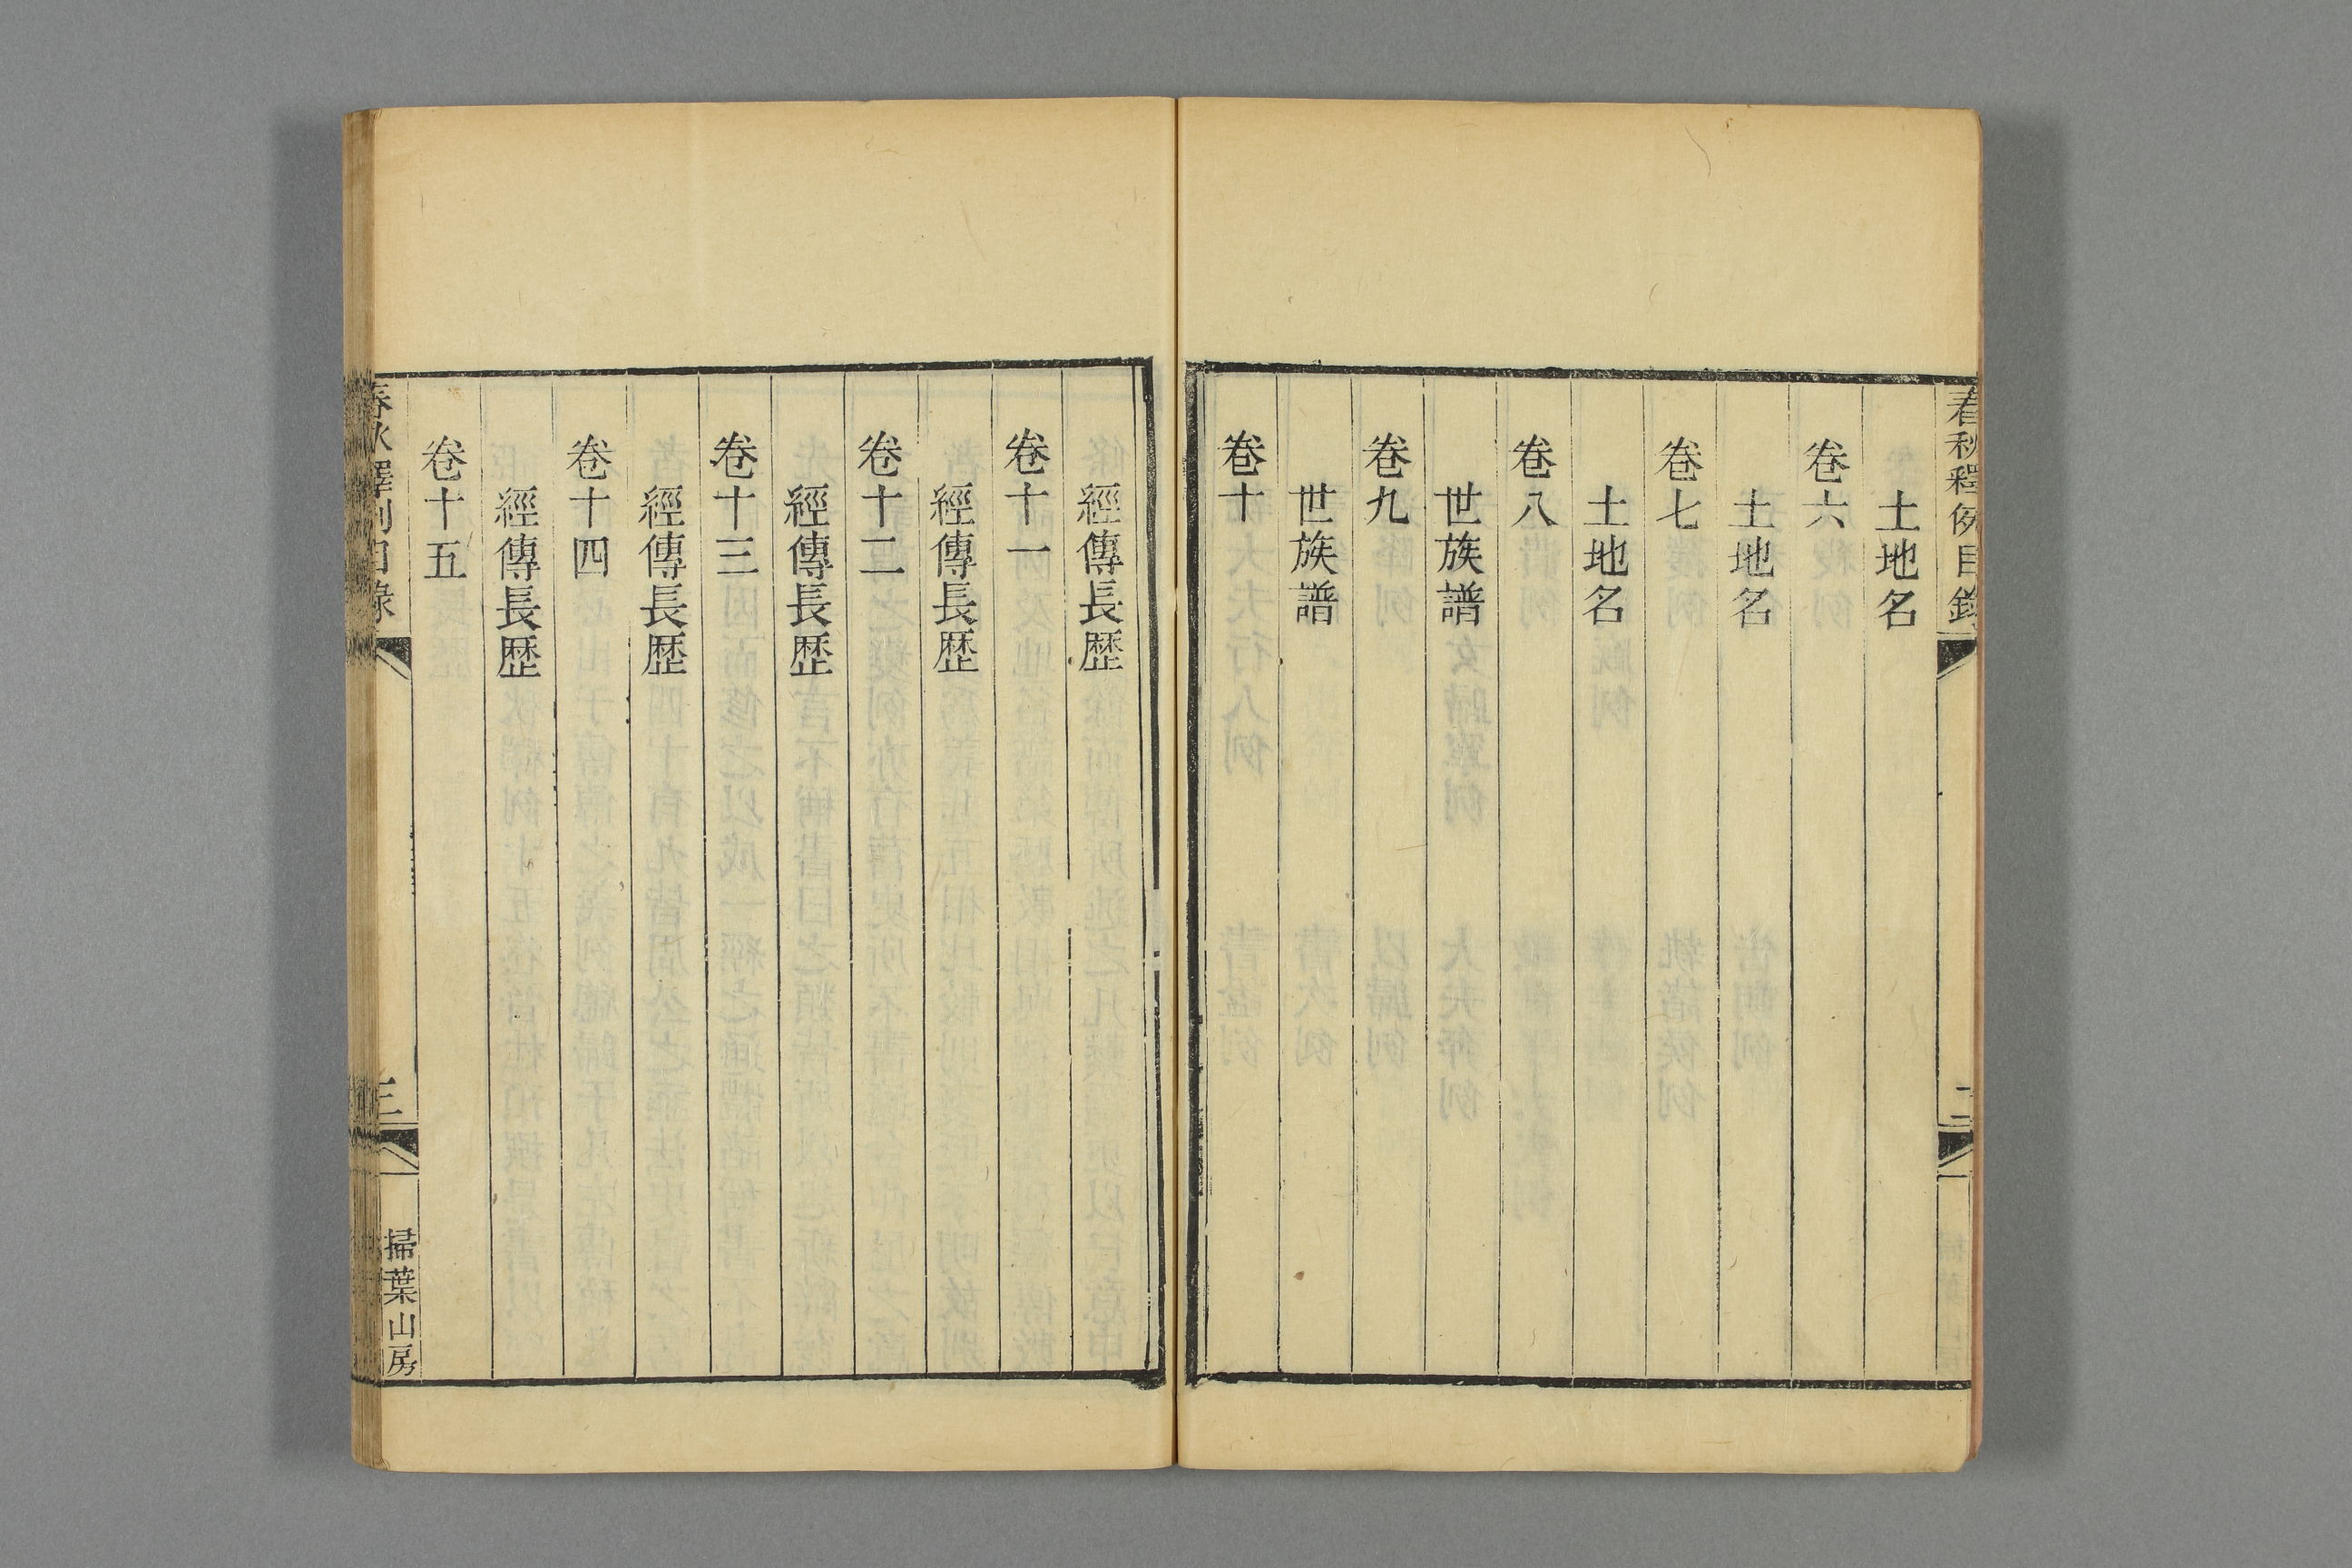 春秋釋例目錄
二
土地名
卷六
土地名
卷七
土地名
卷八
世族譜
卷九
世族譜
卷十
經傳長歴
卷十一
經傳長歴
卷十二
經傳長歴
卷十三
經傳長歴
卷十四
經傳長歴
卷十五
春秋釋例目錄
三
掃葉山房